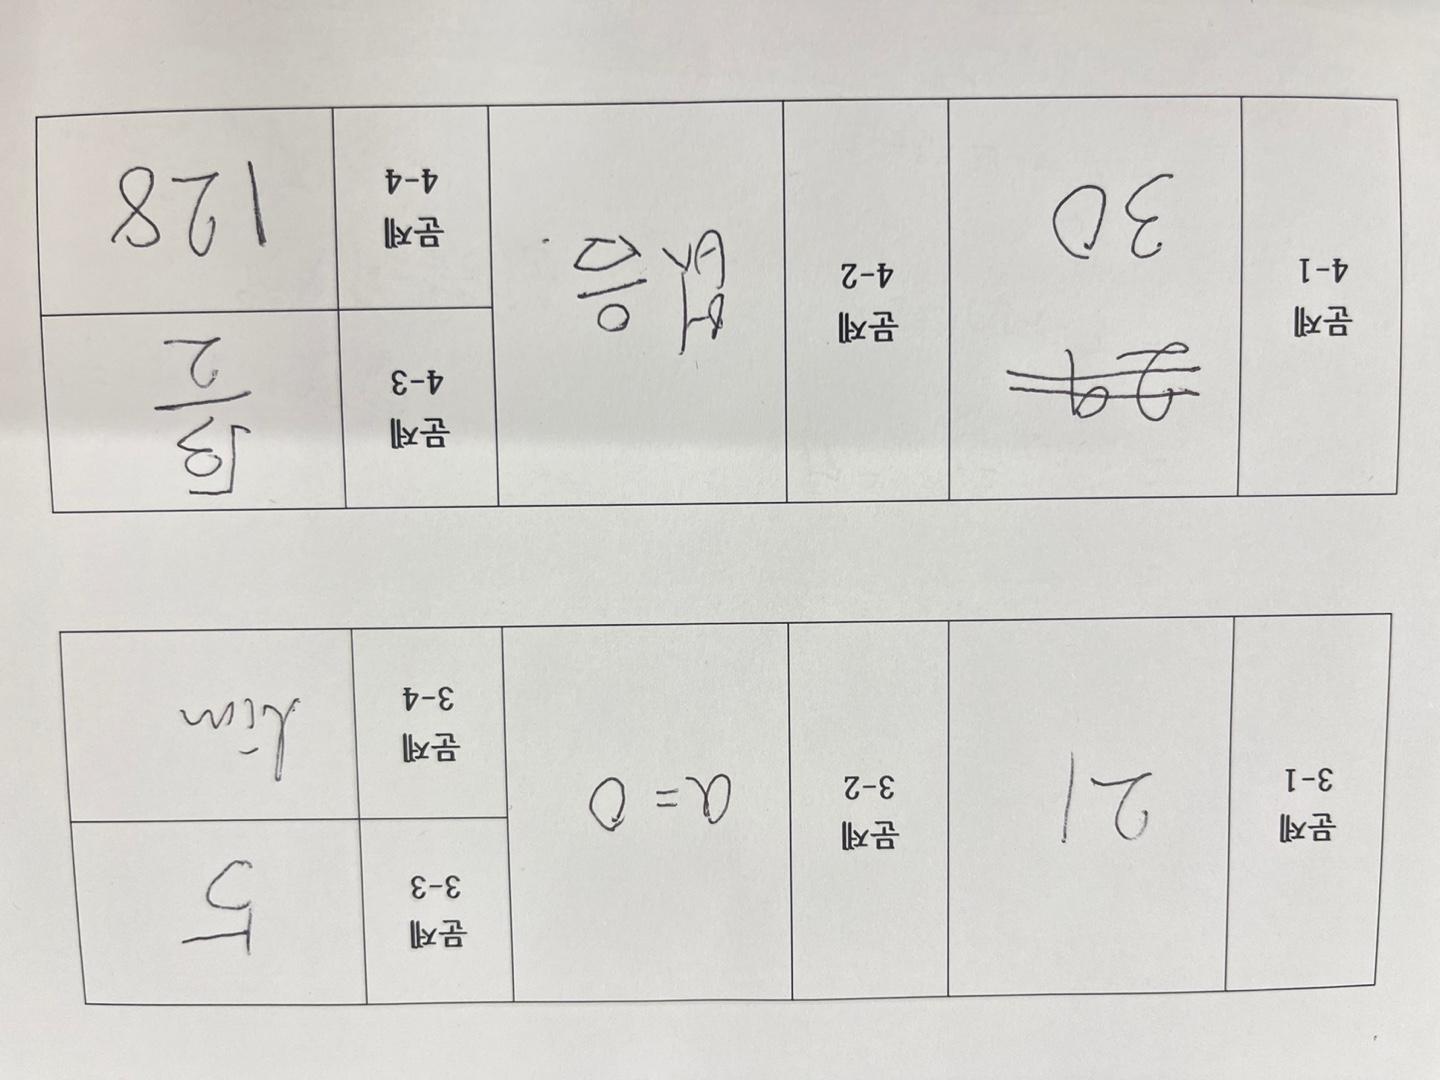 문제
3-1
21
문제
3-2
a=0
문제
3-3
5
문제
3-4
lim
문제
4-1
29
30
문제
4-2
0
0
문제
4-3
√3
2
문제
4-4
128